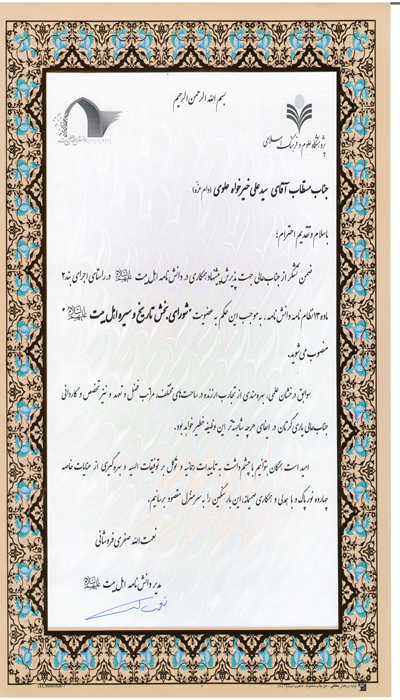 بسم الله الرحمن الرحیم
پژوهشگاه علوم و فرهنگ اسلامی
جناب مستطاب آقای سیدعلی خیرخواه علوی (دام عزه)
باسلام و تقدیم احترام؛
ضمن تشکر از جنابعالی جهت پذیرش پیشنهاد همکاری در دانش نامه اهل بیت علیهم‌السلام در راستای اجرای بند ۲
ماده ۱۳ نظام نامه دانش نامه، به موجب این حکم به عضویت "شورای بخش تاریخ و سیره اهل بیت علیهم‌السلام"
منصوب می‌شوید.
سوابق درخشان علمی، بهره‌مندی از تجارب ارزنده در ساحت‌های مختلف، مراتب فضل و تعهد و نیز تخصص و کاردانی
جنابعالی یاری گرتان در ایفای هرچه شایسته‌تر این وظیفه خطیر خواهد بود.
امید است همگان بتوانیم با چشمداشت به تاییدات رحمانیه و توکل بر توفیقات الهیه و بهره‌گیری از عنایات خاصه
چهارده نور پاک و با همدلی و همکاری صمیمانه، این بار سنگین را به سرمنزل مقصود برسانیم.
نعمت الله صفری فروشانی
مدیر دانش نامه اهل بیت علیهم‌السلام